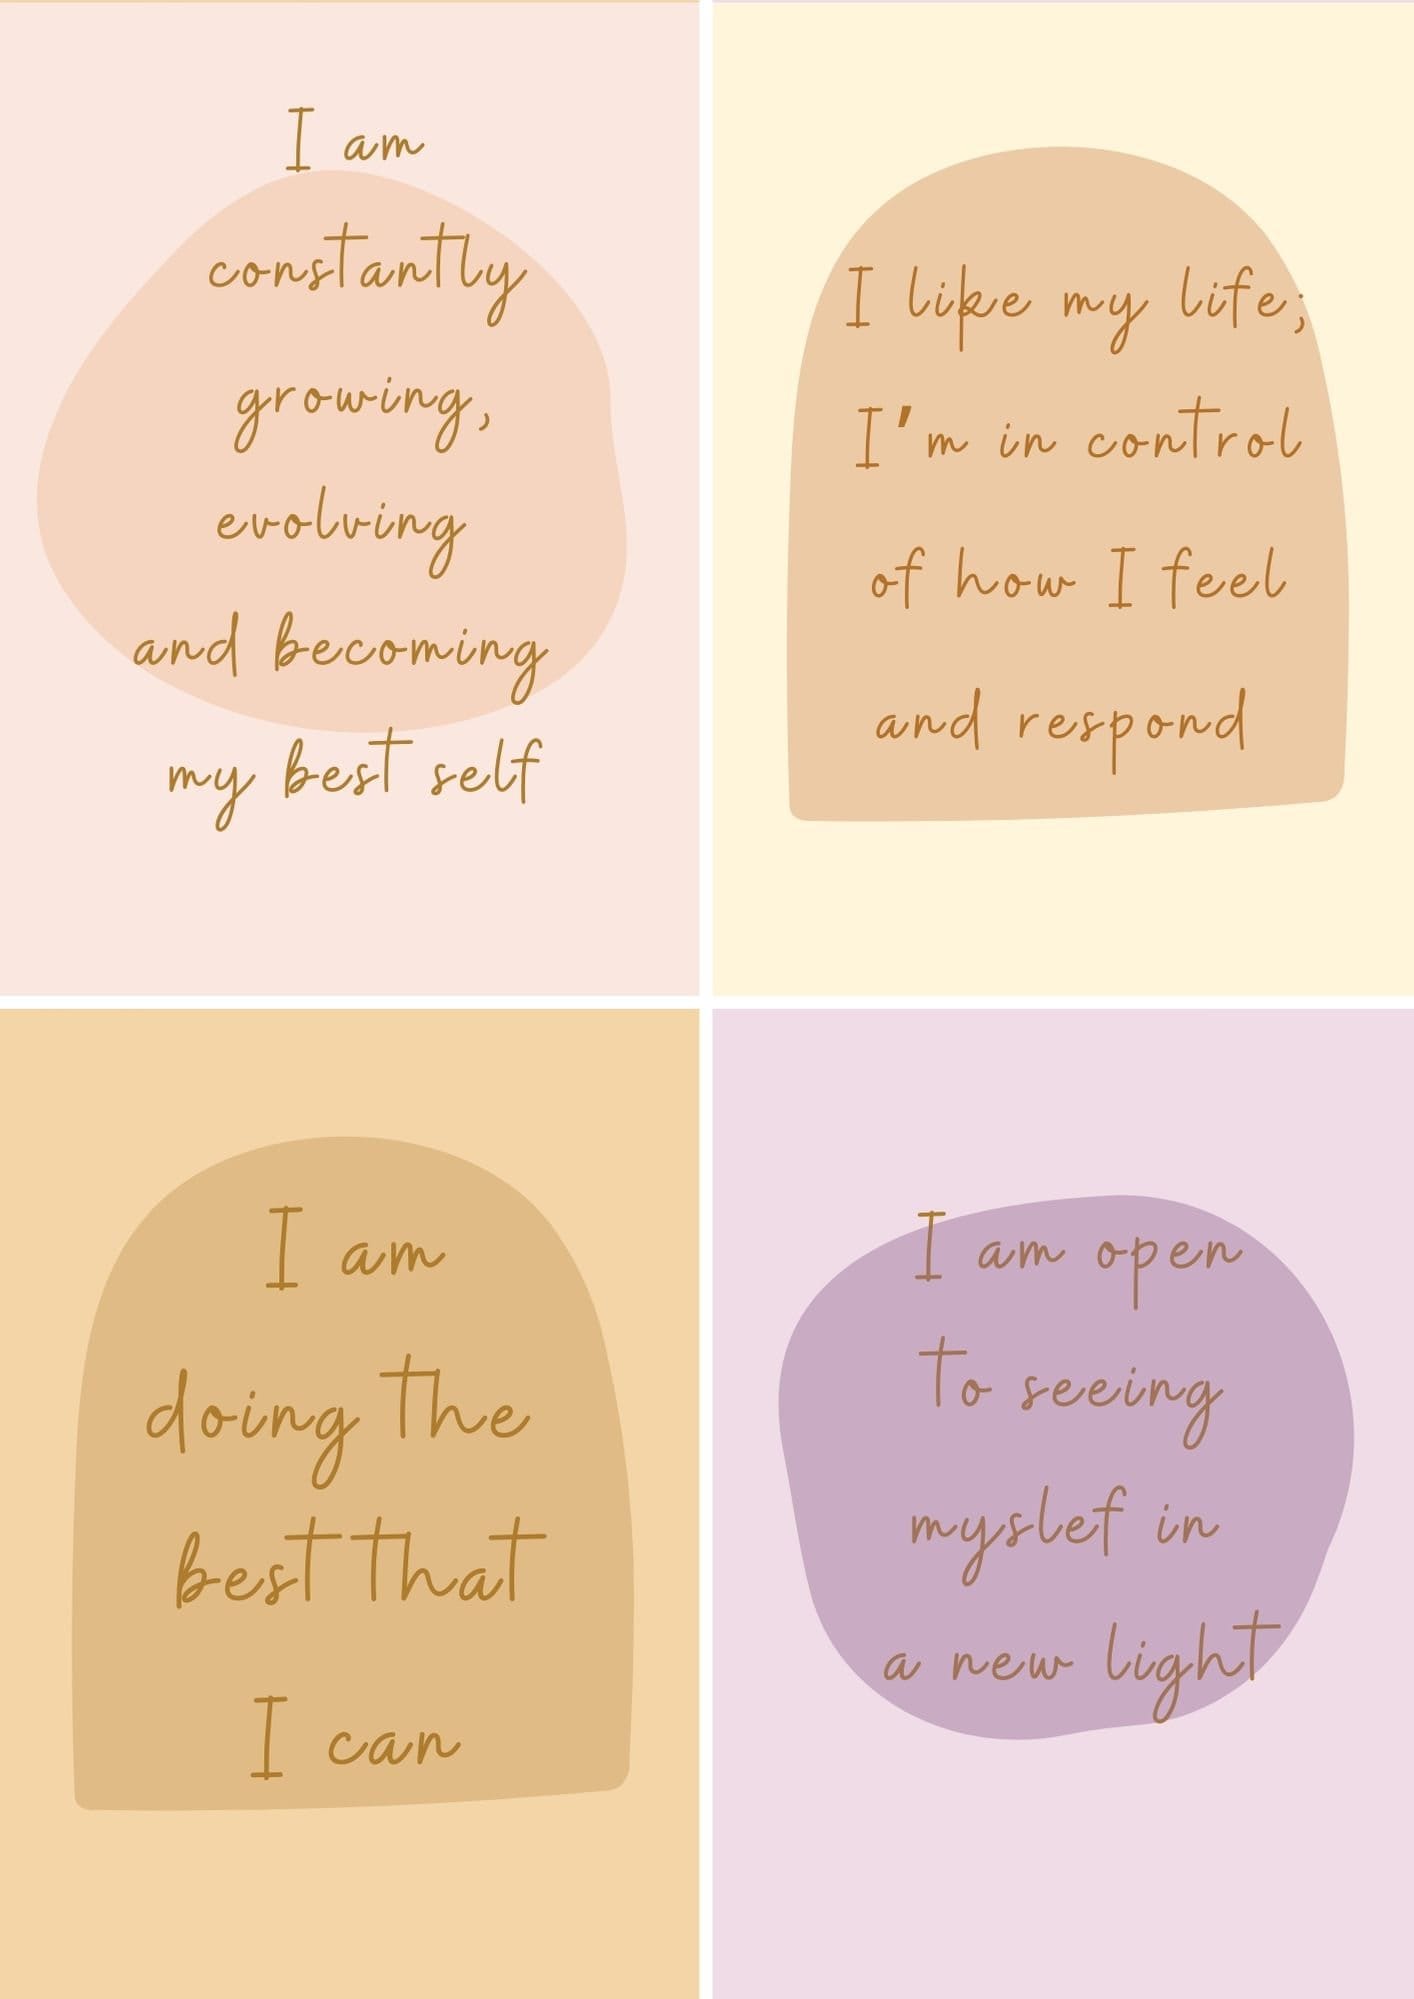 I am
constantly
growing,
evolving
and becoming
my best self
I like my life;
I'm in control
of how I feel
and respond
I am
doing the
best that
I can
I am open
to seeing
myslef in
a new light